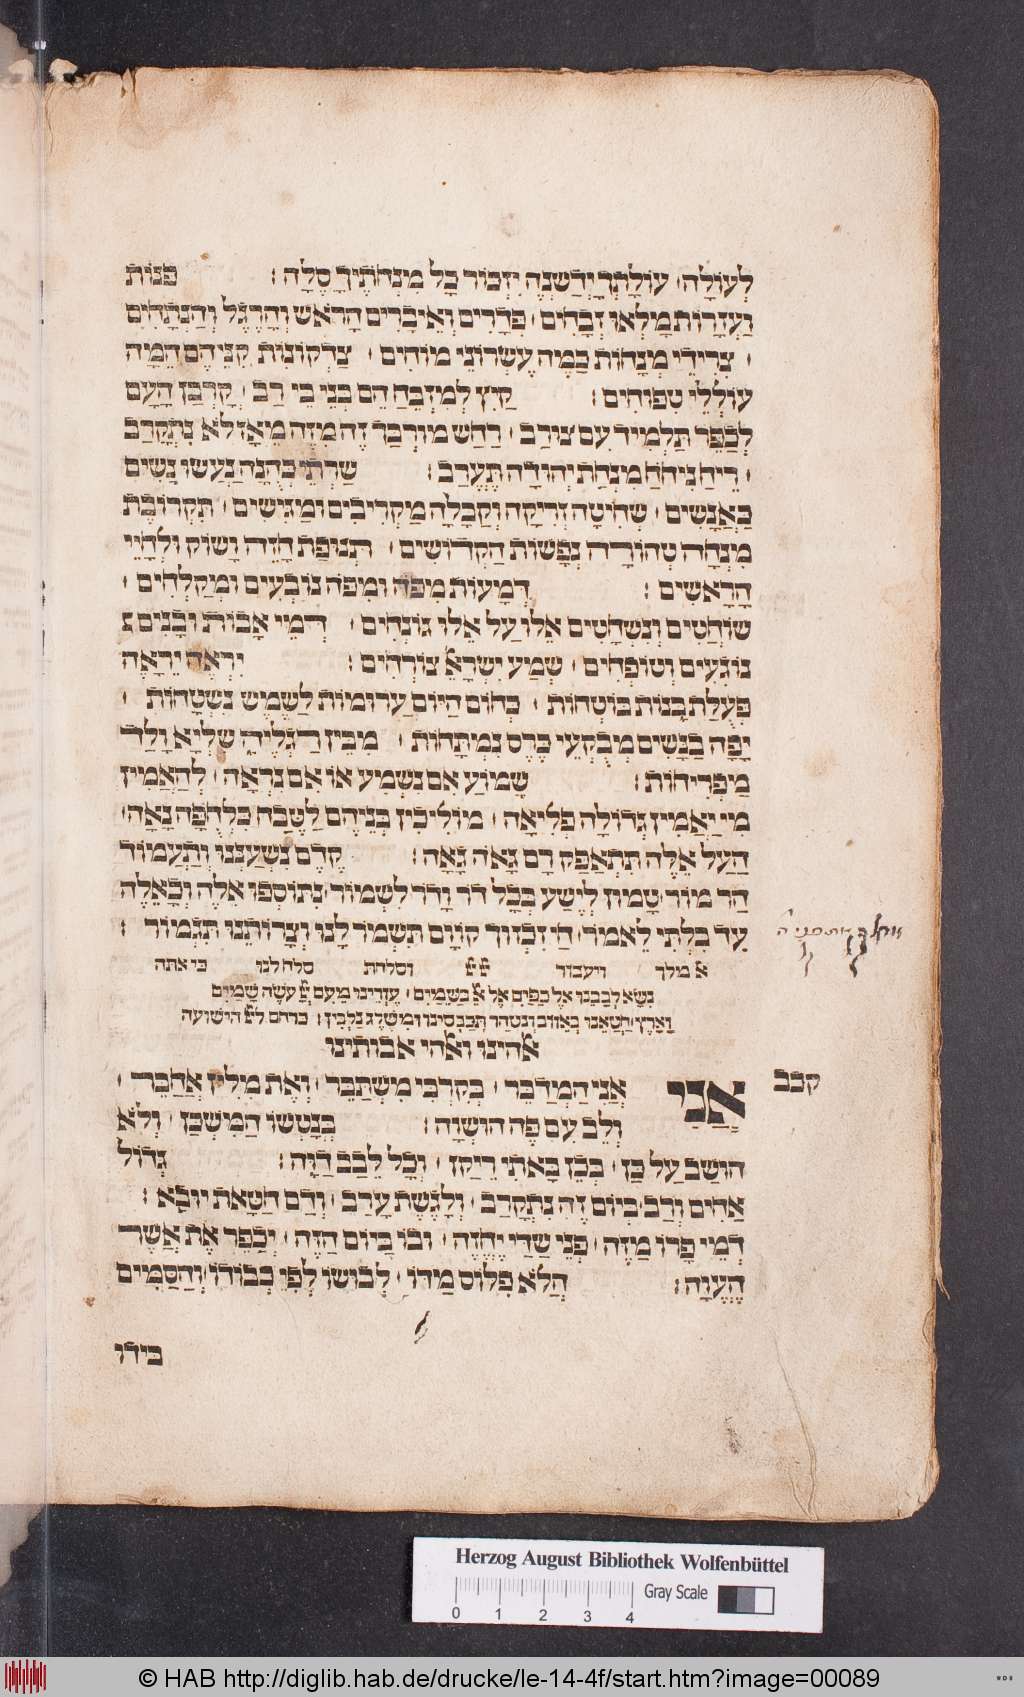 לְעוֹלָה׳ עוֹלָתְךָ יְדַשְּׁנֶה יִזְכּוֹר כָּל מִנְחֹתֶיךָ סֶלָה : פִּנּוֹת
וַעֲזָרוֹת מָלְאוּ זְבָחִים׳ פְּדָרִים וְאֵיבָרִים הָרֹאשׁ וְהָרֶגֶל וְהַנְּתָחִים
׳ צְרִידֵי מְנָחוֹת בַּמֶּה עֶשְׂרוֹנֵי מוֹחִים ׳ צַרְקוֹנוֹת קִנֵּיהֶם הֵמָּה
עוֹלְלֵי טִפּוּחִים : קַיִץ לְמִזְבֵּחַ הֵם בְּנֵי בֵי רַב ׳ קָרְבַּן הָעָם
לְכַפֵּר תַּלְמִיד עִם צוּרַב׳ רַחַשׁ מוּרְבָּד זֶה מִזֶּה מֵאָז לֹא נִתְקָרַב
׳ רֵיחַ נִיחֹחַ מִנְחַת יְהוּדָה תֶּעֱרַב : שֵׁרְתוּ כְּהֻנָּה נַעֲשׂוּ נָשִׁים
כַּאֲנָשִׁים ׳ שְׁחִיטָה זְרִיקָה וְקַבָּלָה מַקְרִיבִים וּמַגִּישִׁים ׳ תִּקְרוֹבֶת
מִנְחָה טְהוֹרָה נְפָשׁוֹת הַקְּדוֹשִׁים ׳ תְּנוּפַת חָזֶה וָשׁוֹק וּלְחָיֵי
הָרָאשִׁים : דְּמָעוֹת מִפֹּה וּמִפֹּה נוֹבְעִים וּמְקַלְּחִים ׳
שׁוֹחֲטִים וְנִשְׁחָטִים אֵלּוּ עַל אֵלּוּ גּוֹנְחִים ׳ דְּמֵי אָבוֹת וּבָנִים
נוֹגְעִים וְטוֹפְחִים ׳ שְׁמַע יִשְׂרָאֵל צוֹרְחִים : יֵרָאֶה
פְּעֻלַּת בָּנוֹת בּוֹטְחוֹת ׳ בְּחוֹם הַיּוֹם עֲרוּמוֹת לַשֶּׁמֶשׁ נִשְׁטָחוֹת ׳
יָפָה בַּנָּשִׁים מְבֻקְּעֵי כֶרֶס נִמְתָּחוֹת ׳ מִבֵּין רַגְלֶיהָ שִׁלְיָא וָלָד
מַפְרִיחוֹת : שָׁמוֹעַ אִם נִשְׁמַע אוֹ אִם נִרְאָה ׳ לְהַאֲמִין
מִי יַאֲמִין גְּדוֹלָה פְּלִיאָה ׳ מוֹלִיכִין בְּנֵיהֶם לַטֶּבַח כִּלְחֻפָּה נָאָה׳
הַעַל אֵלֶּה תִתְאַפַּק רָם גָּאֹה גָּאָה : קֶדֶם נִשְׁעַנּוּ וְתַעֲמוֹד
הַר מוֹר׳ טָמוּן לְיֶשַׁע בְּכָל דֹּר וָדֹר לִשְׁמוֹר׳ נִתּוֹסְפוּ אֵלֶּה וּכְאֵלֶּה
עַד בִּלְתִּי לֵאמוֹר׳ חַי זְכוֹר קוּיָּם תִּשְׁמֹר לָנוּ וְצָרוֹתֵנוּ תִגְמוֹר :
א מלך ויעבור וסלחת סלח לנו כי אתה
נִשָּׂא לְבָבֵנוּ אֶל כַּפַּיִם אֶל אל בַּשָּׁמַיִם ׳ עֶזְרֵינוּ מֵעִם עֹשֶׂה שָׁמַיִם
אלהינו ואלהי אבותינו
קכב
אֲנִי אֲנִי הַמְדַבֵּר ׳ בְּקִרְבִּי מִשְׁתַּבֵּר ׳ וְאֶת מֵלִיץ אֲחַבֵּר ׳
וְלֵב עִם פֶּה הוּשְׁוָה : בְּנָטְשׁוֹ הַמִּשְׁכָּן ׳ וְלֹא
הוּשַׁב עַל כַּן ׳ בְּכֵן בָּאתִי רֵיקָן ׳ וְכָל לֵבָב דַּוָּה : גְּדוֹל
אַחִים וְרַב׳ כַּיּוֹם זֶה נִתְקָרַב ׳ וְלָגֶשֶׁת עָרַב ׳ וְדַם חַטָּאת יוּבָא :
דְּמֵי פָרוֹ מַזֶּה ׳ פְּנֵי שַׁדַּי יֶחֱזֶה ׳ וּבוֹ בַּיּוֹם הַזֶּה ׳ יְכַפֵּר אֶת אֲשֶׁר
הֶעֱוָה : הֲלֹא פִלּוּס מִדּוֹ ׳ לְבוּשׁוֹ לְפִי כְבוֹדוֹ׳ וְהַסַּמִּים
בידו
Herzog August Bibliothek Wolfenbüttel
Gray Scale
0 1 2 3 4
© HAB http://diglib.hab.de/drucke/le-14-4f/start.htm?image=00089